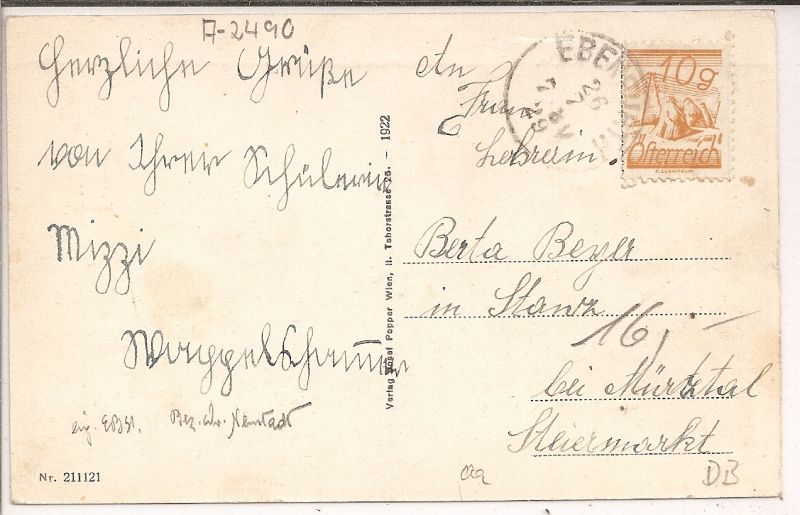 A-2490
Herzliche Grüße
von Ihrer Schülerin
Mizzi
eig. EBSt. Bez. Wr. Neustadt
Nr. 211121
Verlag Josef Popper Wien, II. Taborstrasse 75. – 1922
An
Frau
Lehrerin
Berta Beyer
in Stanz
16,–
bei Mürztal
Steiermarkt
DB
EBER
26
10g
Österreich